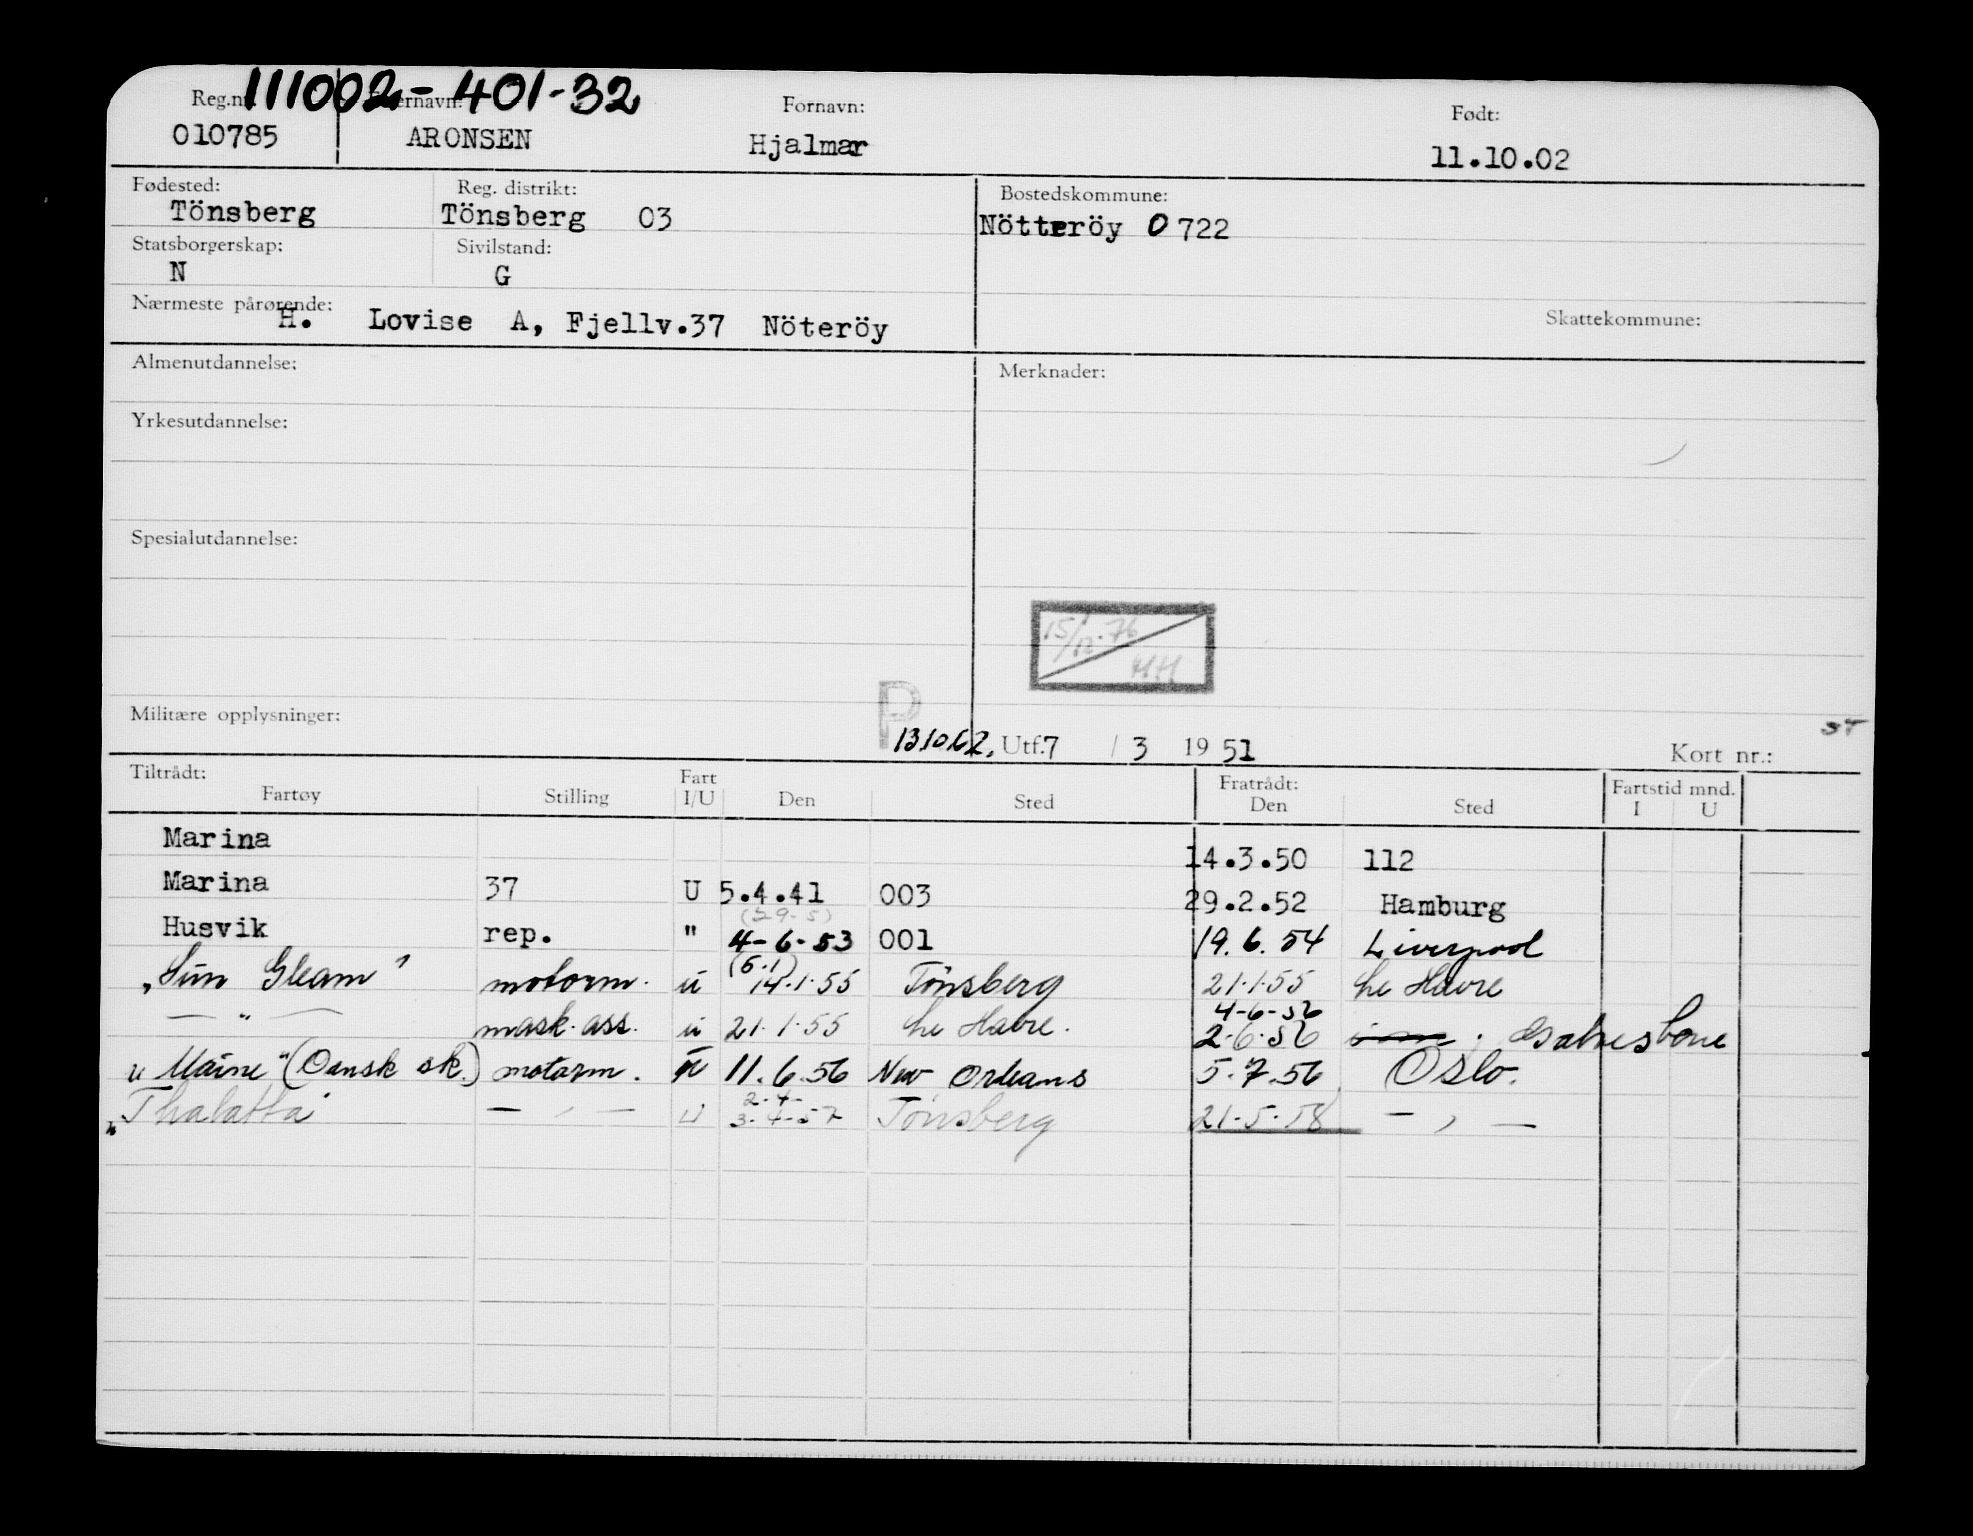 111002-401-32
Reg.nr. Etternavn: Fornavn: Født:
010785 ARONSEN Hjalmar 11.10.02
Fødested: Reg. distrikt: Bostedskommune:
Tönsberg Tönsberg 03 Nötteröy 0722
Statsborgerskap: Sivilstand:
N G
Nærmeste pårørende: Skattekommune:
H. Lovise A, Fjellv.37 Nöteröy
Almenutdannelse: Merknader:
Yrkesutdannelse:
Spesialutdannelse:
15/12.76
HH
Militære opplysninger: P ST
131062. Utf. 7 / 3 19 51 Kort nr.:
Tiltrådt: Fart Fratrådt: Fartstid mnd.
Fartøy Stilling I/U Den Sted Den Sted I U
Marina 14.3.50 112
Marina 37 U 5.4.41 003 29.2.52 Hamburg
(29-5)
Husvik rep. " 4-6-53 001 19.6.54 Liverpool
(5.1)
"Sun Gleam" motorm. u 14.1.55 Tönsberg 21.1.55 Le Havre
4-6-56
— " — mask.ass. u 21.1.55 Le Havre. 2-6-56
"Maine" (Dansk sk.) motorm. U 11.6.56 New Orleans 5.7.56 Oslo.
2-4-
"Thalatta" — " — U 3-4-57 Tönsberg 21-5-58 — " —